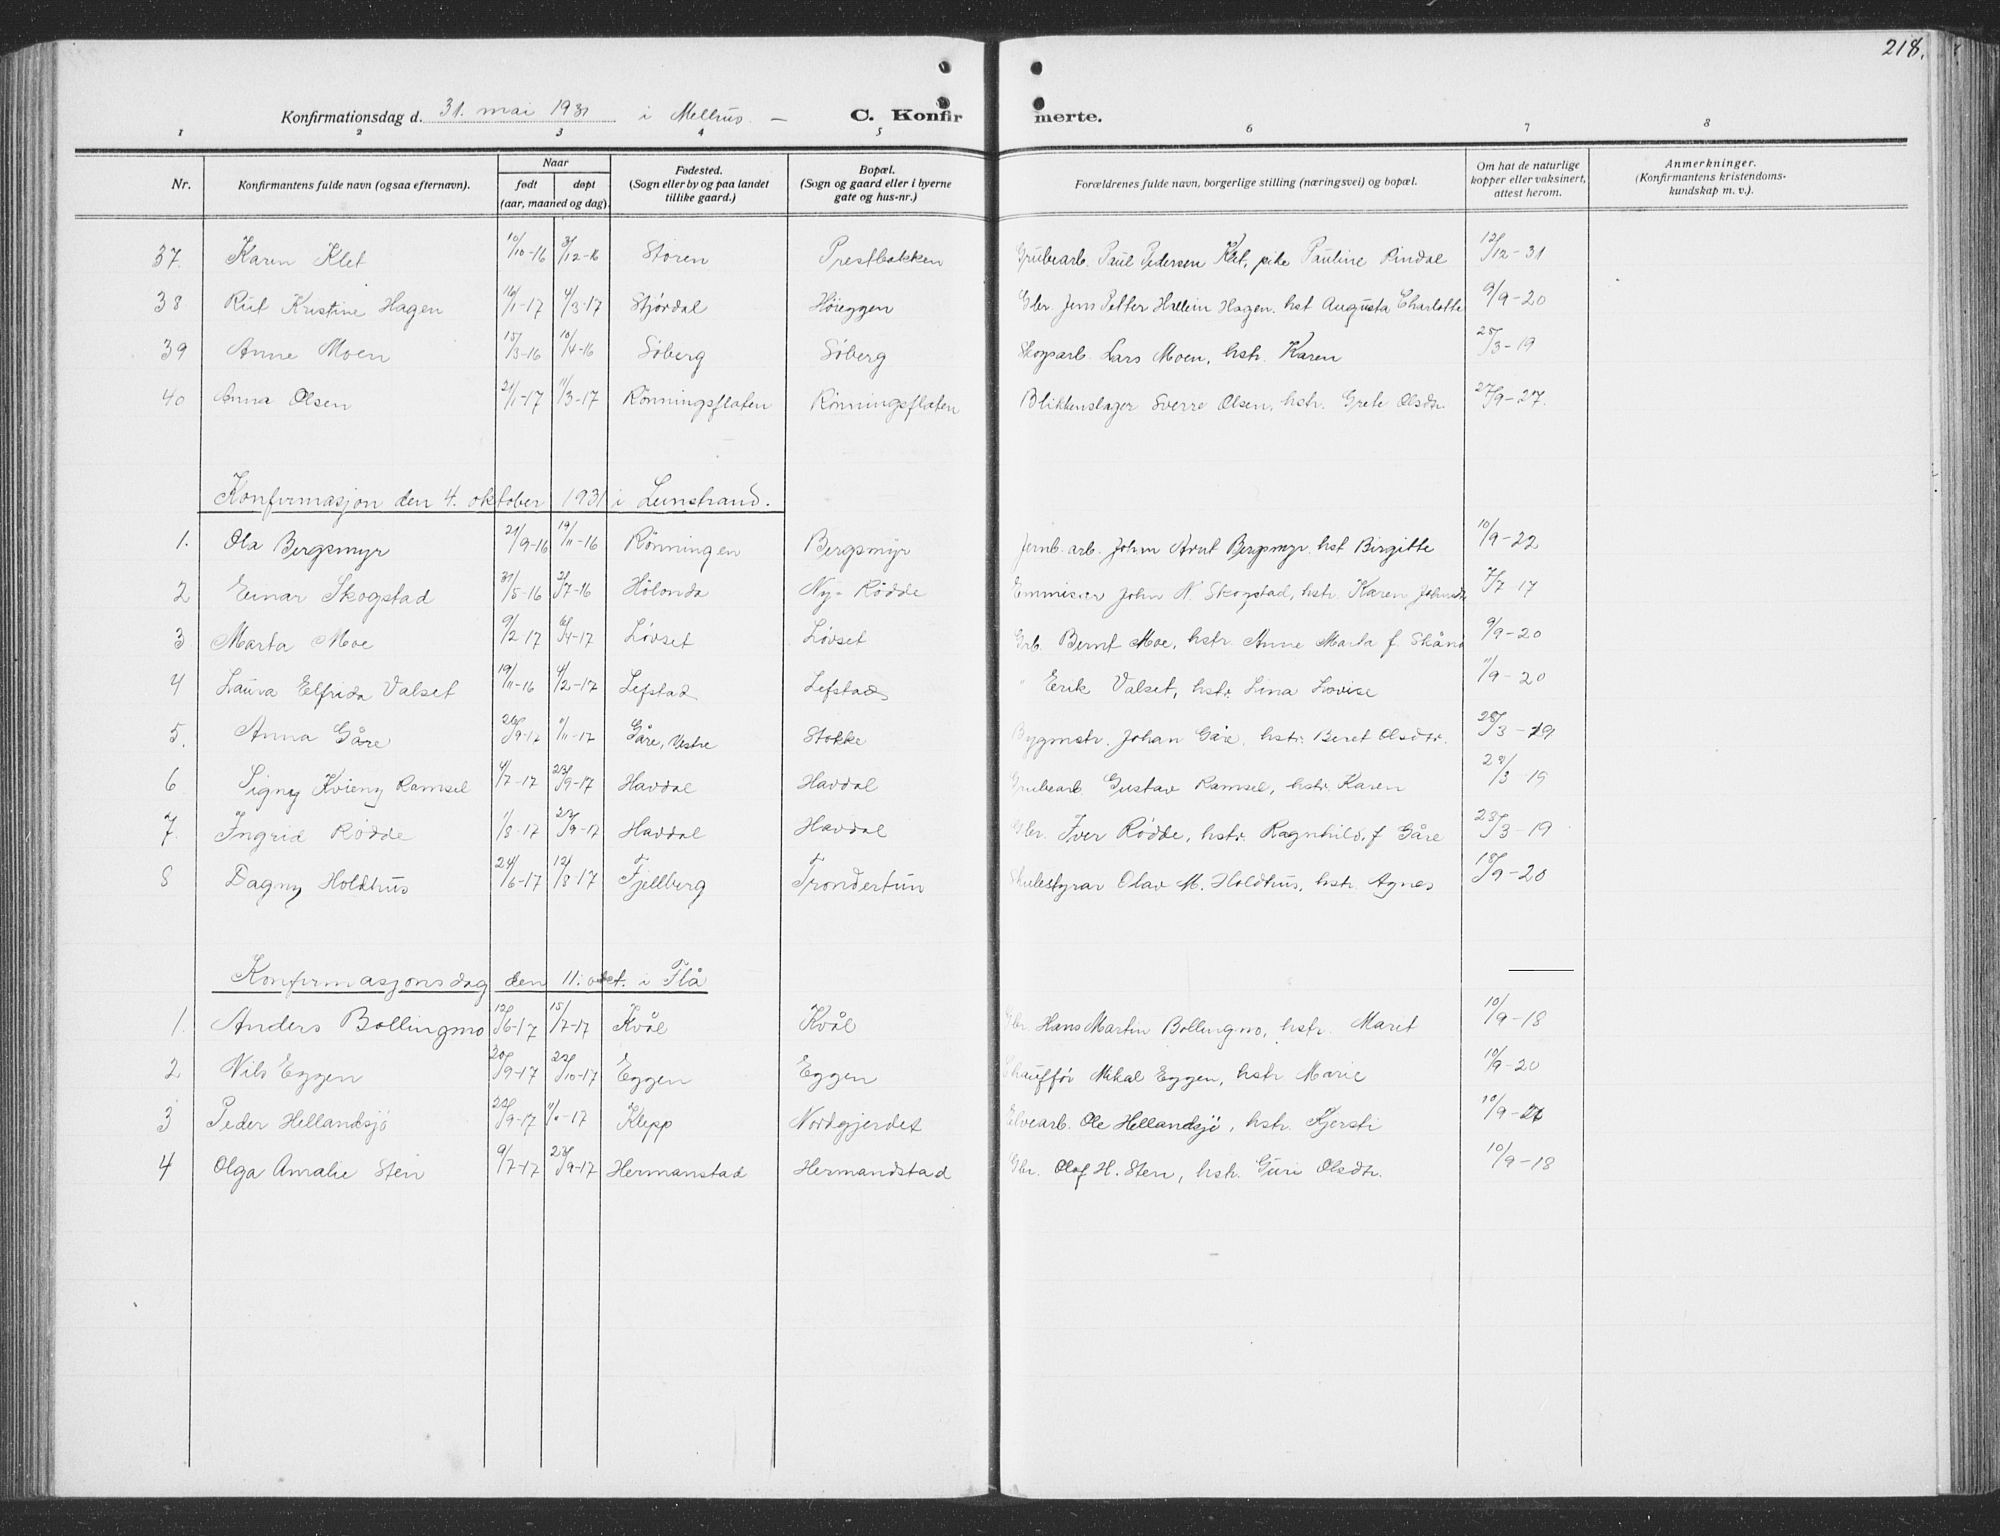 218.
Konfirmationsdag d. 31. mai 1931 i Melhus. — C. Konfirmerte.
1 2 3 4 5 6 7 8
Nr. Konfirmantens fulde navn (ogsaa efternavn). Naar født døpt (aar, maaned og dag). Fødested. (Sogn eller by og paa landet tillike gaard.) Bopæl. (Sogn og gaard eller i byerne gate og hus-nr.) Forældrenes fulde navn, borgerlige stilling (næringsvei) og bopæl. Om hat de naturlige kopper eller vaksinert, attest herom. Anmerkninger. (Konfirmantens kristendoms-kundskap m. v.).
37. Karen Klet 10/10-16 31/12-16 Støren Prestbakken Grubearb. Paul Pedersen Klet, pike Pauline Rindal 12/12-31
38 Rut Kristine Hagen 16/1-17 4/3-17 Stjørdal Høieggen Gbr. Jens Petter Hallein Hagen, hst Augusta Charlotte 9/9-20
39 Anne Moen 15/3-16 10/4-16 Søberg Søberg Skogsarb. Lars Moen, hstr. Karen 25/3-19
40 Anna Olsen 21/1-17 11/3-17 Rønningsflaten Rønningsflaten Blikkenslager Sverre Olsen, hstr. Grete Olsdtr. 27/9-27.
Konfirmasjon den 4. oktober 1931 i Leinstrand.
1. Ola Bergsmyr 21/9-16 19/11-16 Rønningen Bergsmyr Jernb. arb. John Arnt Bergsmyr, hst Birgitte 10/9-22
2 Einar Skogstad 31/5-16 2/7-16 Hølonda Ny-Rødde Emmisær John N. Skogstad, hstr. Karen Johnsdtr 7/7-17
3 Marta Moe 9/2-17 6/4-17 Løvset Løvset Grb. Bernt Moe, hstr. Anne Marta f. 9/9-20
4 Laura Elfrida Valset 19/11-16 4/2-17 Lefstad Lefstad " Erik Valset, hstr. Lina Lovise 11/9-20
5. Anna Gåre 26/9-17 11/11-17 Gåre, Vestre Stokke Bygmstr. Johan Gåre, hstr. Beret Olsdtr. 28/3-19
6 Signy Kvieny Ramsel 4/7-17 23/9-17 Havdal Havdal Grubearb Gustav Ramsel, hstr. Karen 28/3-19
7. Ingrid Rødde 1/8-17 23/9-17 Havdal Havdal Gbr. Iver Rødde, hstr. Ragnhild f. Gåre 28/3-19
8 Dagny Holdhus 24/6-17 12/8-17 Fjellberg Trondertun Skulestyrar Olav M. Holdhus, hstr. Agnes 18/9-20
Konfirmasjonsdag den 11. okt. i Flå
1. Anders Bollingmo 12/6-17 15/7-17 Kvål Kvål Gbr. Hans Martin Bollingmo, hstr. Marit 10/9-18
2 Nils Eggen 20/9-17 22/10-17 Eggen Eggen Chauffør Mikal Eggen, hstr Marie 10/9-20
3 Peder Hellandsjø 22/9-17 Klepp Nordgjerdet Elvearb. Ole Hellandsjø, hstr. Kjersti 10/9-21
4 Olga Amalie Sten 9/7-17 23/9-17 Hermanstad Hermandstad Gbr. Olaf H. Sten, hstr. Guri Olsdtr. 10/9-18